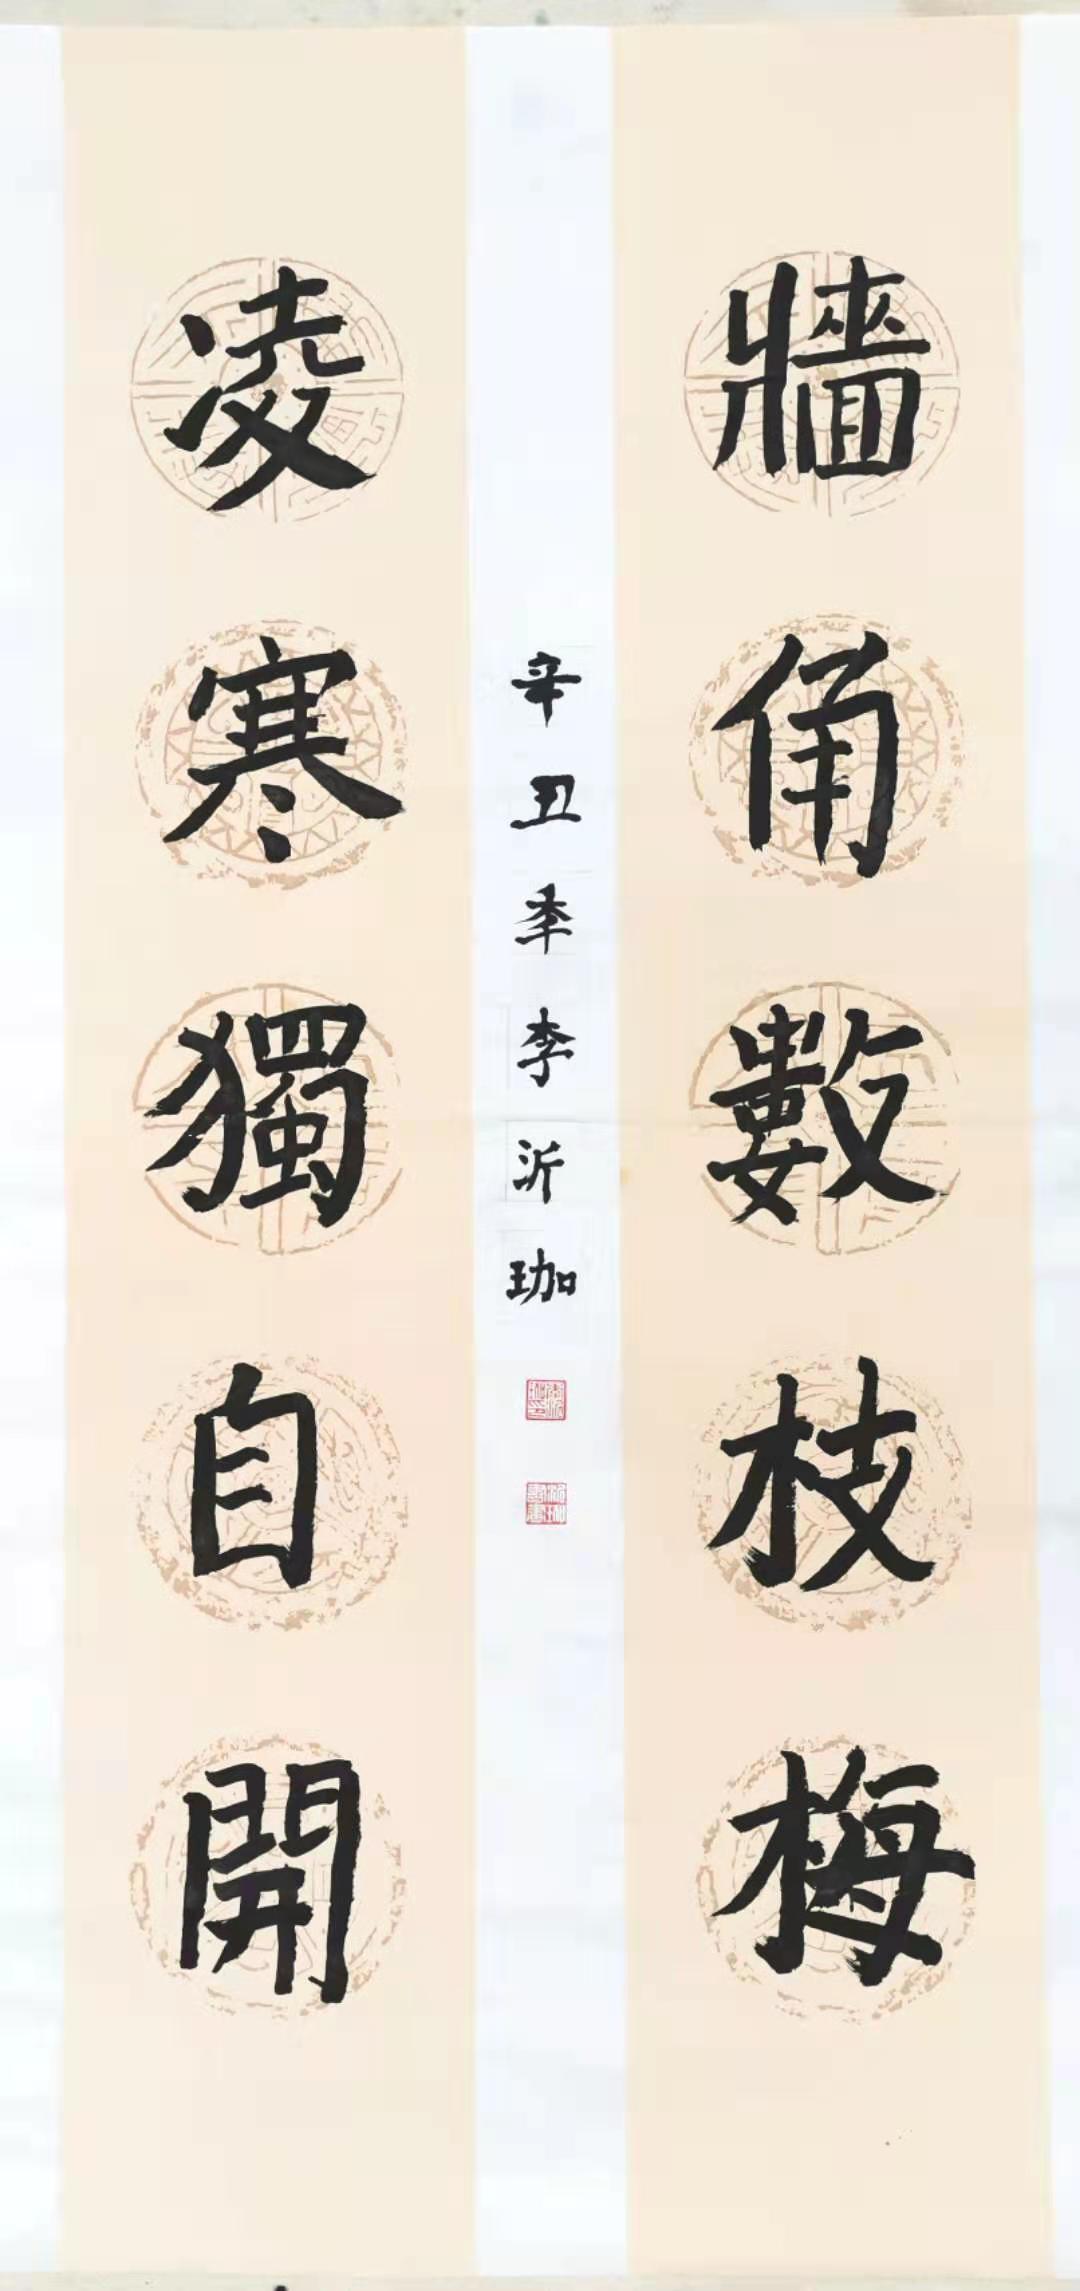 牆角數枝梅
凌寒獨自開
辛丑季李沂珈